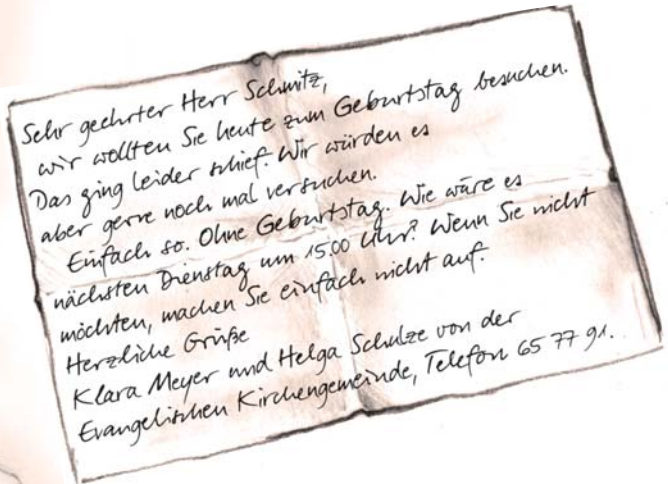 Sehr geehrter Herr Schmitz,
wir wollten Sie heute zum Geburtstag besuchen.
Das ging leider schief. Wir würden es
aber gerne noch mal versuchen.
Einfach so. Ohne Geburtstag. Wie wäre es
nächsten Dienstag um 15.00 Uhr? Wenn Sie nicht
möchten, machen Sie einfach nicht auf.
Herzliche Grüße
Klara Meyer und Helga Schulze von der
Evangelischen Kirchengemeinde, Telefon 65 77 91.